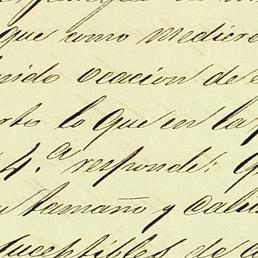 que como medicro
nido ocacion de
rto lo que en la p
4.a responde: q
tamaño y cali
suceptibles de a